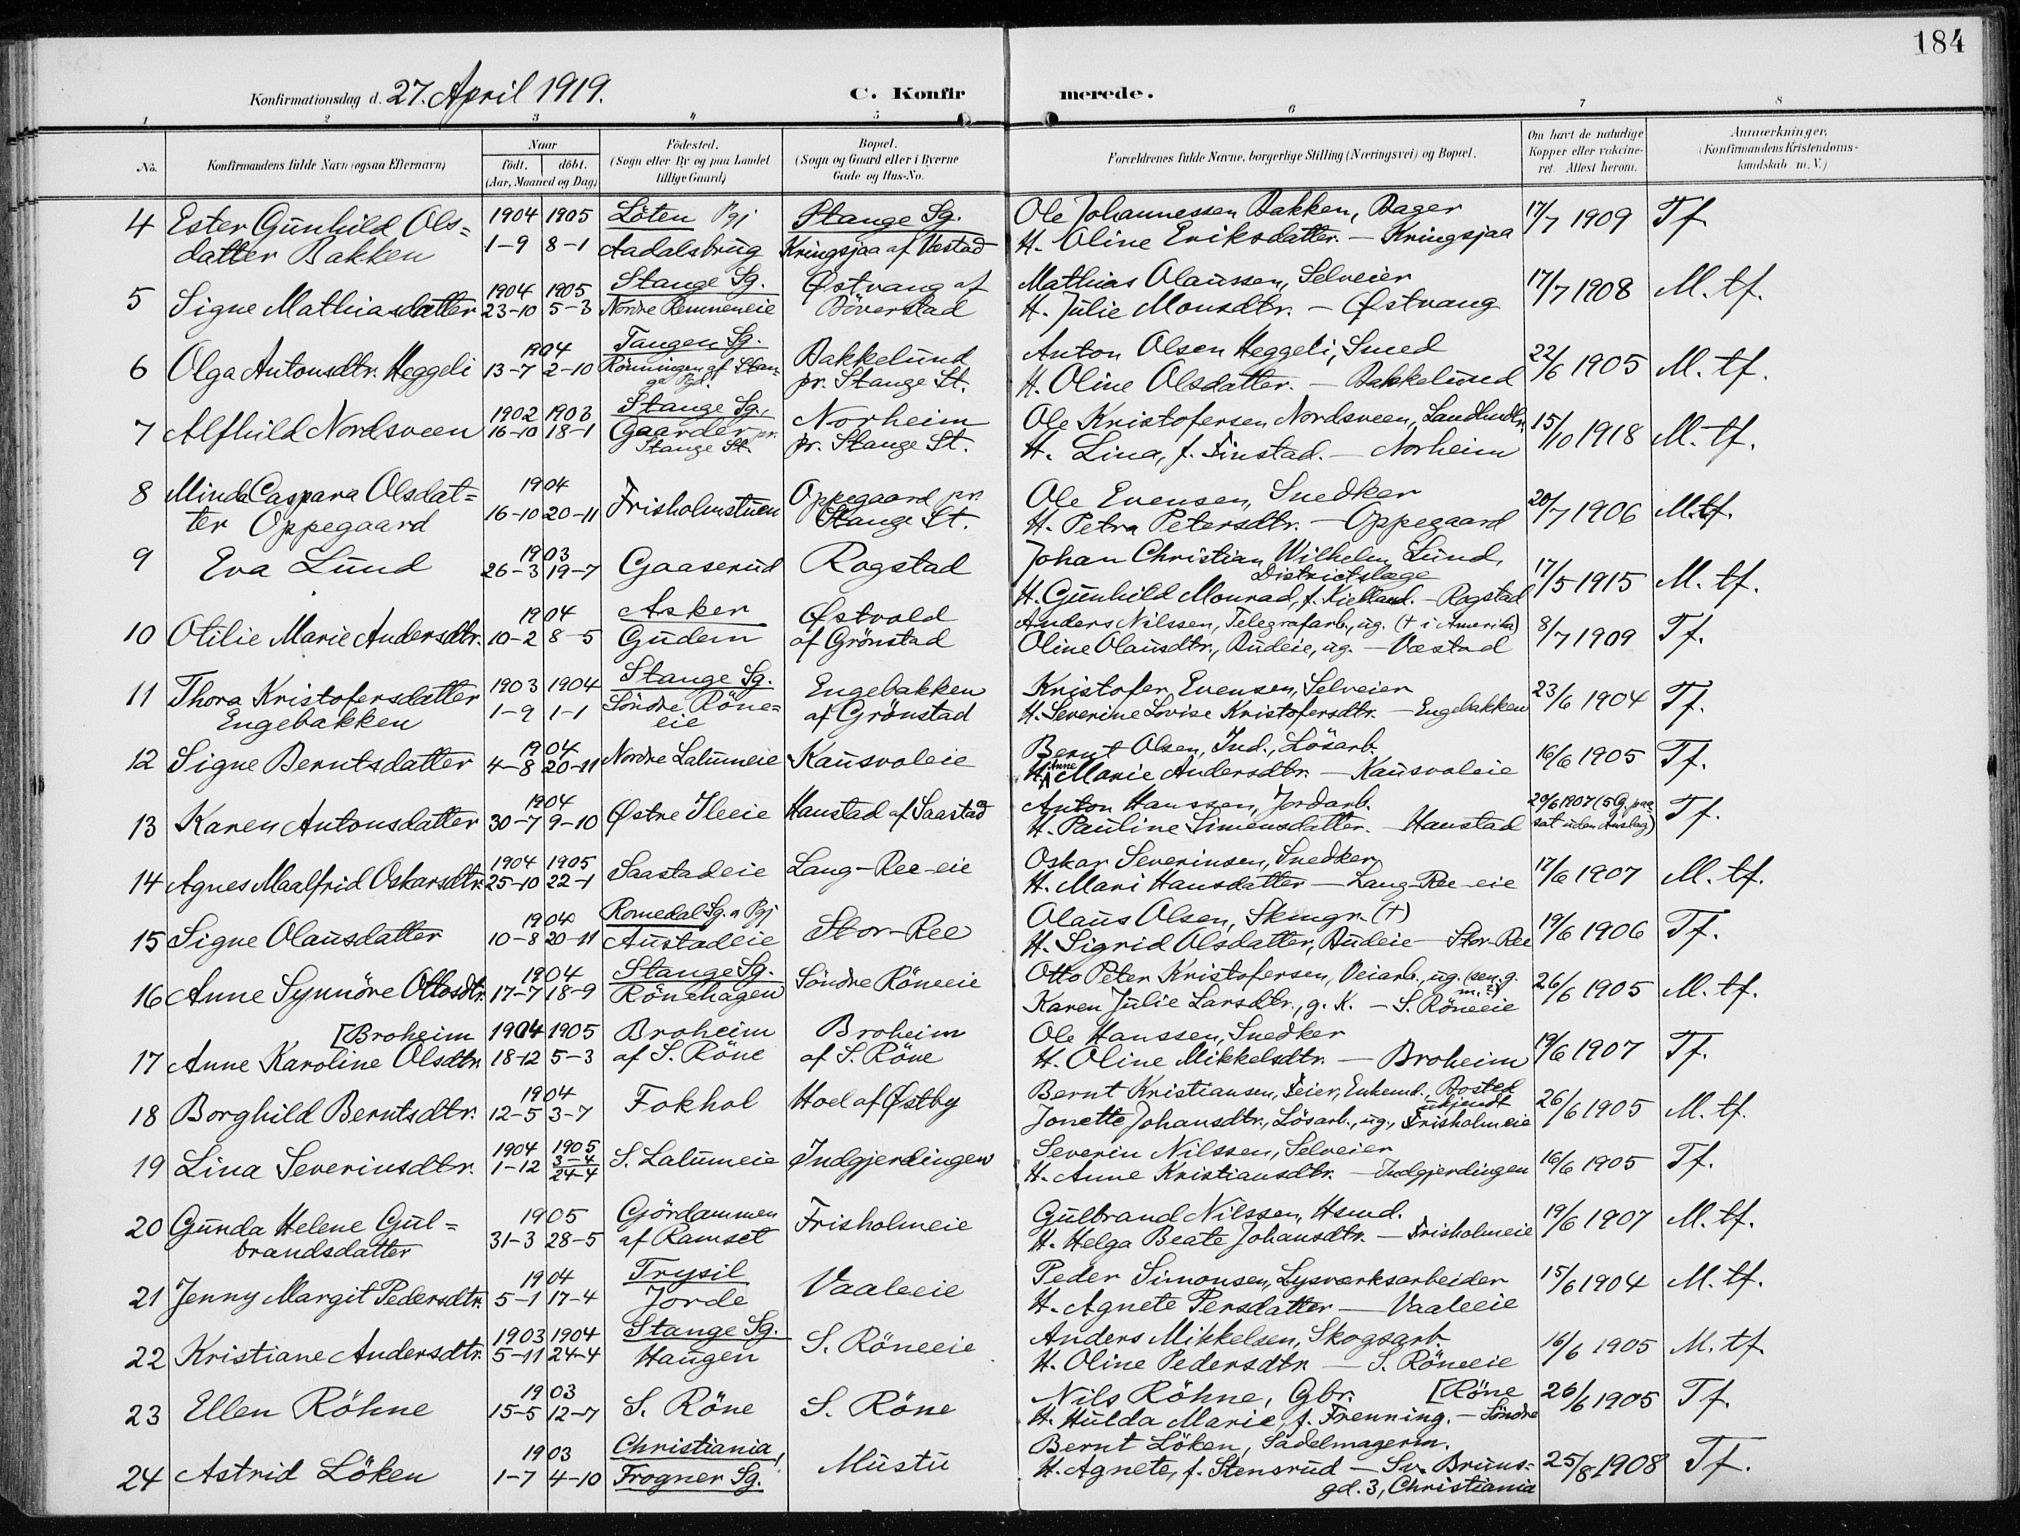 184
Konfirmationsdag d. 27. April 1919. C. Konfirmerede.
1 2 3 4 5 6 7 8
No. Konfirmandens fulde Navn (ogsaa Efternavn) Naar födt. döbt. (Aar, Maaned og Dag) Födested. (Sogn eller By og paa Landet tillige Gaard) Bopæl. (Sogn og Gaard eller i Byerne Gade og Hus-No. Forældrenes fulde Navne, borgerlige Stilling (Næringsvei) og Bopæl. Om havt de naturlige Kopper eller vakcineret. Attest herom. Anmærkninger. (Konfirmandens Kristendomskundskab m. V.)
4 Ester Gunhild Ols= 1904 1905 Löten Pgj Stange Sg. Ole Johannessen Bakken, Bager 17/7 1909 Tf.
datter Bakken 1-9 8-1 Aadalsbrug Kringsjaa af Vestad H. Oline Eriksdatter. — Kringsjaa
5 Signe Mathiasdatter 1904 1905 Stange Sg. Østvang af Mathias Olaussen, Selveier 17/7 1908 M. tf.
23-10 5-3 Nordre Remneneie Böverstad H. Julie Monsdtr. — Østvang
6 Olga Antonsdtr. Heggeli 1904 Tangen Sg. Bakkelund Anton Olsen Heggeli, Smed 22/6 1905 M. tf.
13-7 2-10 Rönningen af Stange Pgd. pr. Stange St. H. Oline Olsdatter. — Bakkelund
7 Alfhild Nordsveen 1902 1903 Stange Sg. Norheim Ole Kristofersen Nordsveen, Landhndlr. 15/10 1918 M. tf.
16-10 18-1 Gaarder pr. Stange St. pr. Stange St. H. Lina, f. Finstad. — Norheim
8 Minda Caspara Olsdat= 1904 Frisholmstuen Oppegaard pr. Ole Evensen, Snedker 20/7 1906 M. tf.
ter Oppegaard 16-10 20-11 Stange St. H. Petra Petersdtr. — Oppegaard
9 Eva Lund 1903 Gaaserud Rogstad Johan Christian Wilhelm Lund, Districtslæge 17/5 1915 M. tf.
26-3 19-7 H. Gunhild Monrad, f. Kielland. — Rogstad
10 Otilie Marie Andersdtr. 1904 Asker Østvold Anders Nilssen, Telegrafarb., ug. († i Amerika) 8/7 1909 Tf.
10-2 8-5 Gudem af Grönstad Oline Olausdtr., Budeie, ug. — Vestad
11 Thora Kristofersdatter 1903 1904 Stange Sg. Engebakken Kristofer Evensen, Selveier 23/6 1904 Tf.
Engebakken 1-9 1-1 Söndre Röne=eie af Grönstad H. Severine Lovise Kristofersdtr. — Engebakken
12 Signe Berntsdatter 1904 Nordre Lalumeie Kausvoleie Bernt Olsen, Ind., Lösarb. 16/6 1905 Tf.
4-8 20-11 H. Anne Marie Andersdtr. — Kausvoleie
13 Karen Antonsdatter 1904 Østre Ileeie Hanstad af Saastad Anton Hanssen, Jordarb. 20/6 1907 (5 G. paasat uden Anslag) Tf.
30-7 9-10 H. Pauline Simensdatter. — Hanstad
14 Agnes Maalfrid Oskarsdtr. 1904 1905 Saastadeie Lang-Ree-eie Oskar Severinsen, Snedker 17/6 1907 M. tf.
25-10 22-1 H. Mari Hansdatter — Lang-Ree-eie
15 Signe Olausdatter 1904 Romedal Sg. o Pgj Stor-Ree Olaus Olsen, Skmgr. (†) 19/6 1906 Tf.
10-8 20-11 Austadeie H. Sigrid Olsdatter, Budeie — Stor-Ree
16 Anne Synnöve Ottosdtr. 1904 Stange Sg. Söndre Röneeie Otto Peter Kristofersen, Veiarb., ug. (sen. g. m. :) 26/6 1905 M. tf.
17-7 18-9 Rönehagen Karen Julie Larsdtr., g. K. — S. Röneeie
[Broheim 1904 1905 Broheim Broheim Ole Hanssen, Snedker 19/6 1907 Tf.
17 Anne Karoline Olsdtr. 18-12 5-3 af S. Röne af S. Röne H. Oline Mikkelsdtr. — Broheim
18 Borghild Berntsdtr. 1904 Fokhol Hoel af Østby Bernt Kristiansen, Feier, Enkemd., Bosted ukjendt 26/6 1905 M. tf.
12-5 3-7 Jonette Johansdtr., Lösarb., ug., Frisholmeie
19 Lina Severinsdtr. 1904 1905 S. Lalumeie Indgjerdingen Severin Nilssen, Selveier 16/6 1905 Tf.
1-12 3-4 24-4 H. Anne Kristiansdtr. — Indgjerdingen
20 Gunda Helene Gul= 1905 Gjördammen Frisholmeie Gulbrand Nilssen, Hsmd. 19/6 1907 M. tf.
brandsdatter 31-3 28-5 af Ramset H. Helga Beate Johansdtr. — Frisholmeie
21 Jenny Margit Pedersdtr. 1904 Trysil Vaaleeie Peder Simonsen, Lysværksarbeider 15/6 1904 M. tf.
5-1 17-4 Jorde H. Agnete Persdatter — Vaaleeie
22 Kristiane Andersdtr. 1903 1904 Stange Sg. S. Röneeie Anders Mikkelsen, Skogsarb. 16/6 1905 M. tf.
5-11 24-4 Haugen H. Oline Pedersdtr. — S. Röneeie
23 Ellen Röhne 1903 S. Röne S. Röne Nils Röhne, Gbr. [Röne 26/6 1905 Tf.
15-5 12-7 H. Hulda Marie, f. Frenning. — Söndre
24 Astrid Löken 1903 Christiania, Mustu Bernt Löken, Sadelmagerm. 25/8 1908 Tf.
1-7 4-10 Frogner Sg. H. Agnete, f. Stensrud — Sv. Bruns=
gd. 3, Christiania